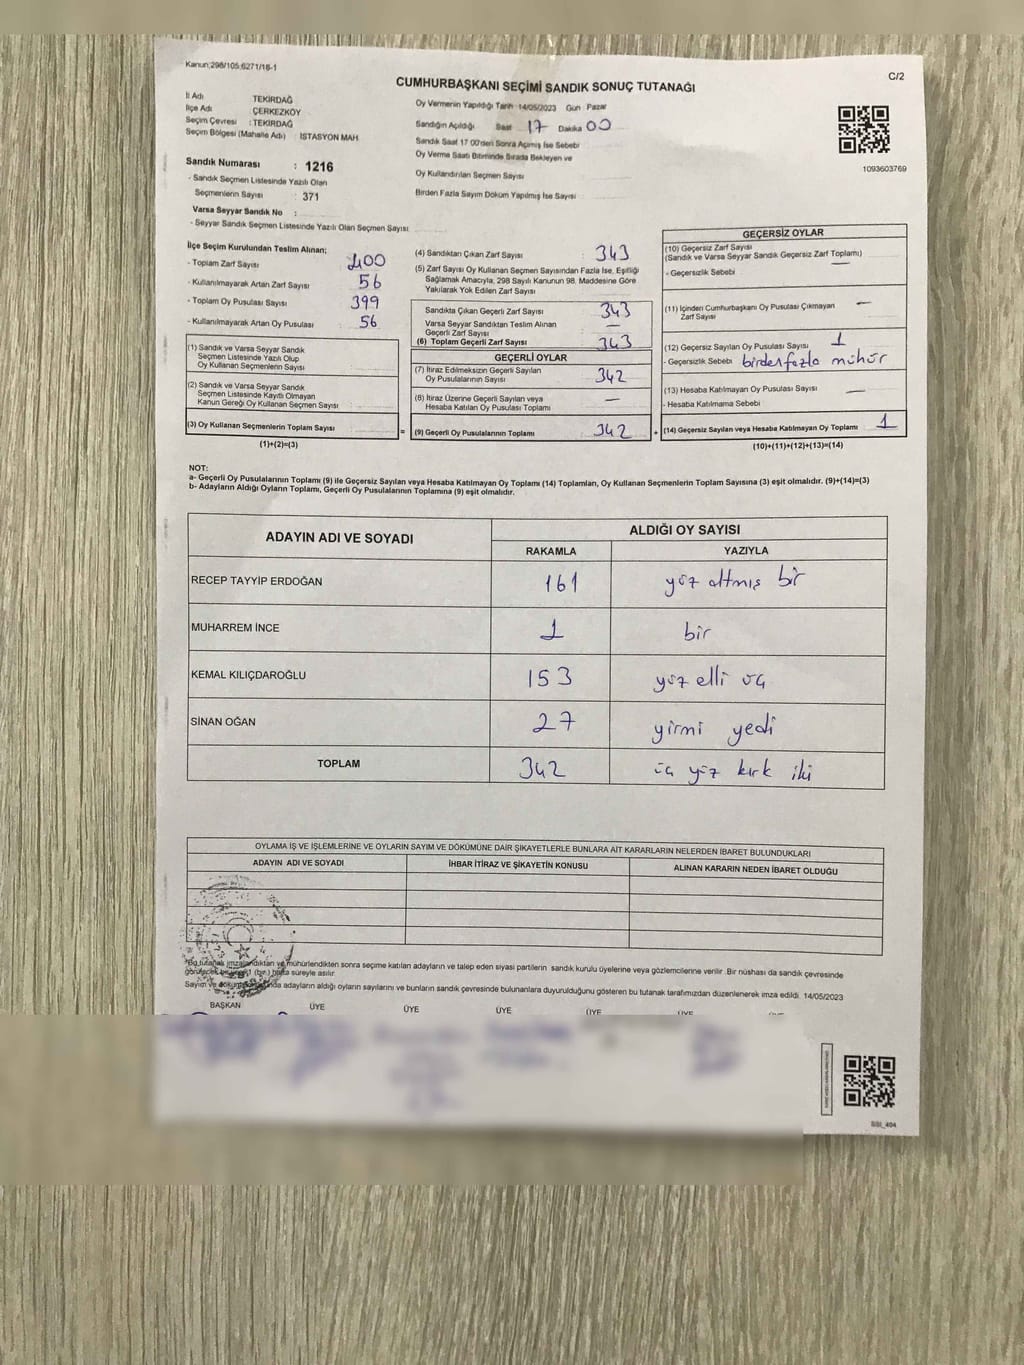 Kanun:298/105:6271/18-1
C/2
CUMHURBAŞKANI SEÇİMİ SANDIK SONUÇ TUTANAĞI
İl Adı TEKİRDAĞ
İlçe Adı ÇERKEZKÖY
Seçim Çevresi : TEKİRDAĞ
Seçim Bölgesi (Mahalle Adı) : İSTASYON MAH.
Sandık Numarası : 1216
- Sandık Seçmen Listesinde Yazılı Olan
Seçmenlerin Sayısı : 371
Varsa Seyyar Sandık No :
- Seyyar Sandık Seçmen Listesinde Yazılı Olan Seçmen Sayısı
Oy Vermenin Yapıldığı Tarih : 14/05/2023 Gün : Pazar
Sandığın Açıldığı Saat 17 Dakika 00
Sandık Saat 17:00'den Sonra Açılmış İse Sebebi
Oy Verme Saati Bitiminde Sırada Bekleyen ve
Oy Kullandırılan Seçmen Sayısı :
Birden Fazla Sayım Döküm Yapılmış İse Sayısı :
1093603769
İlçe Seçim Kurulundan Teslim Alınan;
- Toplam Zarf Sayısı 400
- Kullanılmayarak Artan Zarf Sayısı 56
- Toplam Oy Pusulası Sayısı 399
- Kullanılmayarak Artan Oy Pusulası 56
(1) Sandık ve Varsa Seyyar Sandık
Seçmen Listesinde Yazılı Olup
Oy Kullanan Seçmenlerin Sayısı
(2) Sandık ve Varsa Seyyar Sandık
Seçmen Listesinde Kayıtlı Olmayan
Kanun Gereği Oy Kullanan Seçmen Sayısı
(3) Oy Kullanan Seçmenlerin Toplam Sayısı =
(1)+(2)=(3)
(4) Sandıktan Çıkan Zarf Sayısı : 343
(5) Zarf Sayısı Oy Kullanan Seçmen Sayısından Fazla İse, Eşitliği
Sağlamak Amacıyla, 298 Sayılı Kanunun 98. Maddesine Göre
Yakılarak Yok Edilen Zarf Sayısı
Sandıkta Çıkan Geçerli Zarf Sayısı 343
Varsa Seyyar Sandıktan Teslim Alınan
Geçerli Zarf Sayısı —
(6) Toplam Geçerli Zarf Sayısı 343
GEÇERLİ OYLAR
(7) İtiraz Edilmeksizin Geçerli Sayılan
Oy Pusulalarının Sayısı 342
(8) İtiraz Üzerine Geçerli Sayılan veya
Hesaba Katılan Oy Pusulası Toplamı —
(9) Geçerli Oy Pusulalarının Toplamı 342 +
GEÇERSİZ OYLAR
(10) Geçersiz Zarf Sayısı
(Sandık ve Varsa Seyyar Sandık Geçersiz Zarf Toplamı) —
- Geçersizlik Sebebi
(11) İçinden Cumhurbaşkanı Oy Pusulası Çıkmayan —
Zarf Sayısı
(12) Geçersiz Sayılan Oy Pusulası Sayısı 1
- Geçersizlik Sebebi birden fazla mühür
(13) Hesaba Katılmayan Oy Pusulası Sayısı —
- Hesaba Katılmama Sebebi
(14) Geçersiz Sayılan veya Hesaba Katılmayan Oy Toplamı 1
(10)+(11)+(12)+(13)=(14)
NOT:
a- Geçerli Oy Pusulalarının Toplamı (9) ile Geçersiz Sayılan veya Hesaba Katılmayan Oy Toplamı (14) Toplamları, Oy Kullanan Seçmenlerin Toplam Sayısına (3) eşit olmalıdır. (9)+(14)=(3)
b- Adayların Aldığı Oyların Toplamı, Geçerli Oy Pusulalarının Toplamına (9) eşit olmalıdır.
ADAYIN ADI VE SOYADI ALDIĞI OY SAYISI
RAKAMLA YAZIYLA
RECEP TAYYİP ERDOĞAN 161 yüz altmış bir
MUHARREM İNCE 1 bir
KEMAL KILIÇDAROĞLU 153 yüz elli üç
SİNAN OĞAN 27 yirmi yedi
TOPLAM 342 üç yüz kırk iki
OYLAMA İŞ VE İŞLEMLERİNE VE OYLARIN SAYIM VE DÖKÜMÜNE DAİR ŞİKAYETLERLE BUNLARA AİT KARARLARIN NELERDEN İBARET BULUNDUKLARI
ADAYIN ADI VE SOYADI İHBAR İTİRAZ VE ŞİKAYETİN KONUSU ALINAN KARARIN NEDEN İBARET OLDUĞU
*Bu tutanak imzalandıktan ve mühürlendikten sonra seçime katılan adayların ve talep eden siyasi partilerin sandık kurulu üyelerine veya gözlemcilerine verilir. Bir nüshası da sandık çevresinde
görülecek bir yere 1 (bir) hafta süreyle asılır.
Sayım ve dökümü sonunda adayların aldığı oyların sayılarını ve bunların sandık çevresinde bulunanlara duyurulduğunu gösteren bu tutanak tarafımızdan düzenlenerek imza edildi. 14/05/2023
BAŞKAN ÜYE ÜYE ÜYE ÜYE ÜYE
BSI_404